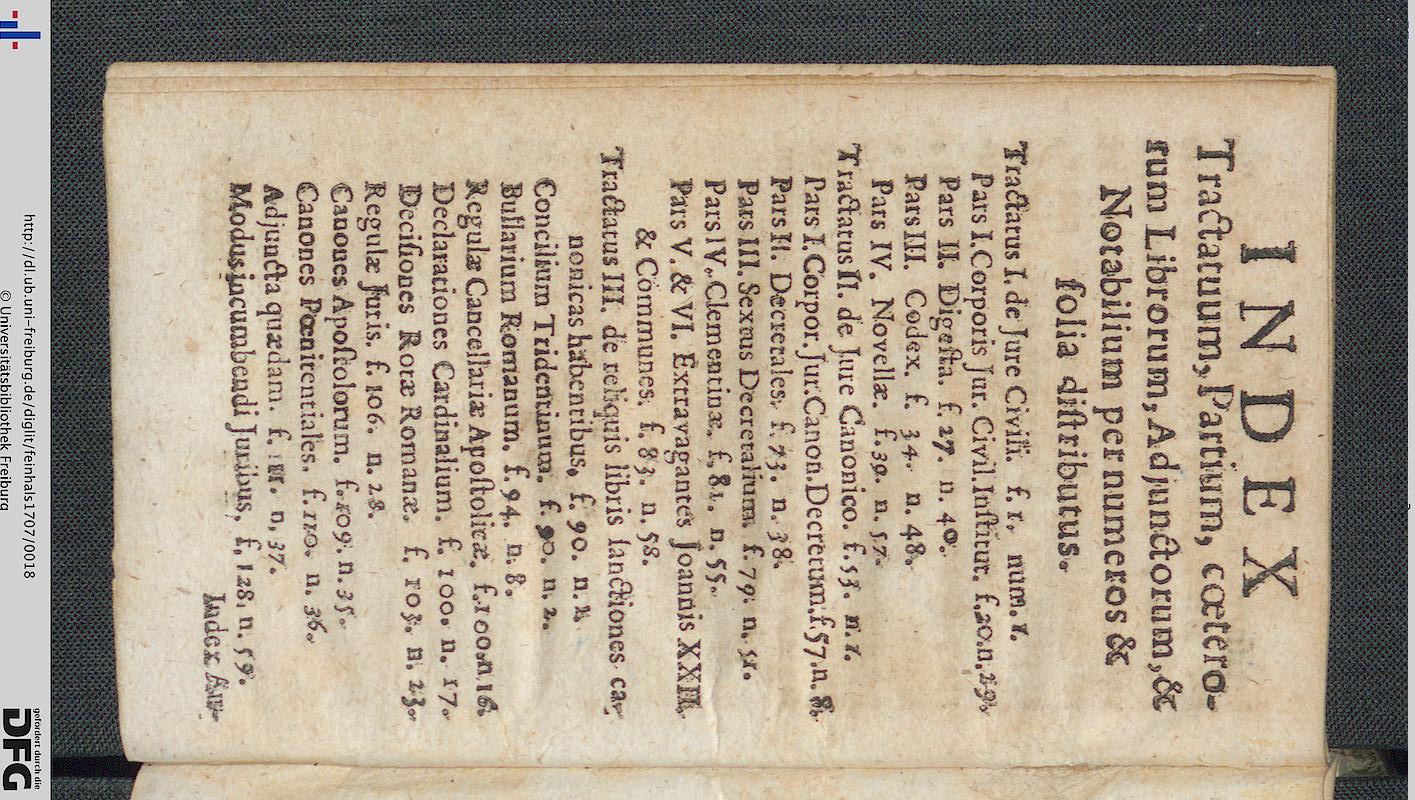 INDEX
Tractatuum, Partium, cœtero-
rum Librorum, Adjunctorum, &
Notabilium per numeros &
folia diſtributus.
Tractatus I. de Jure Civili. f. 1. num. 1.
Pars I. Corporis Jur. Civil. Inſtitut. f. 20. n. 29.
Pars II. Digeſta. f. 27. n. 40.
Pars III. Codex. f. 34. n. 48.
Pars IV. Novellæ. f. 39. n. 57.
Tractatus II. de Jure Canonico. f. 53. n. 1.
Pars I. Corpor. Jur. Canon. Decretum. f 57. n. 8.
Pars II. Decretales. f. 73. n. 38.
Pars III. Sextus Decretalium. f. 79. n. 51.
Pars IV. Clementinæ. f. 81. n. 55.
Pars V. & VI. Extravagantes Joannis XXII.
& Communes. f. 83. n. 58.
Tractatus III. de reliquis libris ſanctiones ca-
nonicas habentibus, f. 90. n. 1.
Concilium Tridentinum. f. 90. n. 2.
Bullarium Romanum. f. 94. n. 8.
Regulæ Cancellariæ Apoſtolicæ. f. 100. n. 16.
Declarationes Cardinalium. f. 100. n. 17.
Deciſiones Rotæ Romanæ. f. 103. n. 23.
Regulæ Juris. f. 106. n. 28.
Canones Apoſtolorum. f. 109. n. 35.
Canones Pœnitentiales. f. 110. n. 36.
Adjuncta quædam. f. 111. n. 37.
Modus incumbendi Juribus. f. 128. n. 59.
Index
http://dl.ub.uni-freiburg.de/diglit/feinhals1707/0018
© Universitätsbibliothek Freiburg
gefördert durch die
DFG